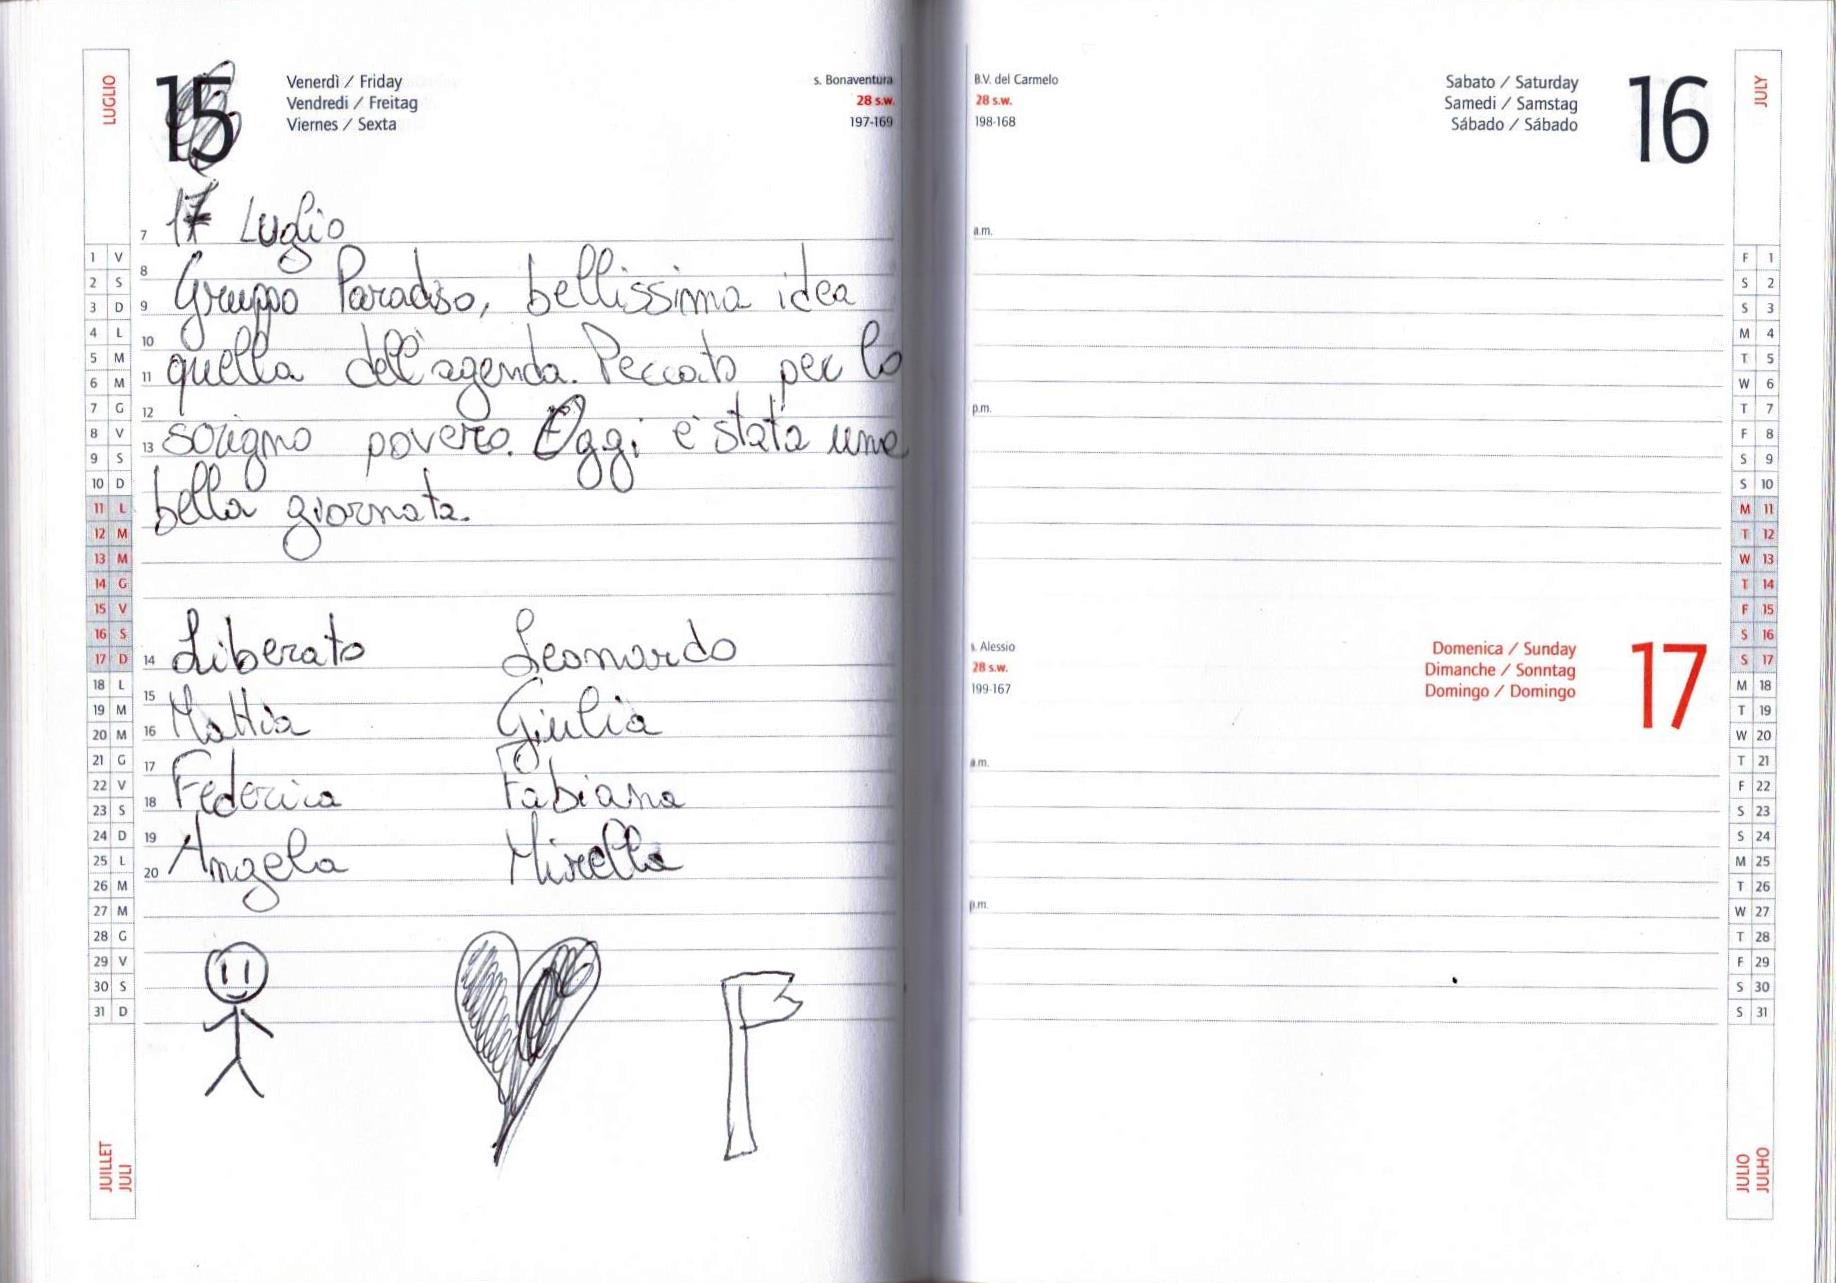 LUGLIO
15
Venerdì / Friday
Vendredi / Freitag
Viernes / Sexta
s. Bonaventura
28 s.w.
197-169
17 Luglio
7
8
Gruppo Paradiso, bellissima idea
9
10
quella dell'agenda. Peccato per lo
11
12
sorigno povero. Oggi è stata una
13
bella giornata.
Liberato Leonardo
14
15
Mattia Giulia
16
17
Federica Fabiana
18
19
Angela Mirella
20
1 V
2 S
3 D
4 L
5 M
6 M
7 G
8 V
9 S
10 D
11 L
12 M
13 M
14 G
15 V
16 S
17 D
18 L
19 M
20 M
21 G
22 V
23 S
24 D
25 L
26 M
27 M
28 G
29 V
30 S
31 D
JUILLET
JULI
B.V. del Carmelo
28 s.w.
198-168
Sabato / Saturday
Samedi / Samstag
Sábado / Sábado
16
JULY
a.m.
p.m.
s. Alessio
28 s.w.
199-167
Domenica / Sunday
Dimanche / Sonntag
Domingo / Domingo
17
a.m.
p.m.
F 1
S 2
S 3
M 4
T 5
W 6
T 7
F 8
S 9
S 10
M 11
T 12
W 13
T 14
F 15
S 16
S 17
M 18
T 19
W 20
T 21
F 22
S 23
S 24
M 25
T 26
W 27
T 28
F 29
S 30
S 31
JULIO
JULHO